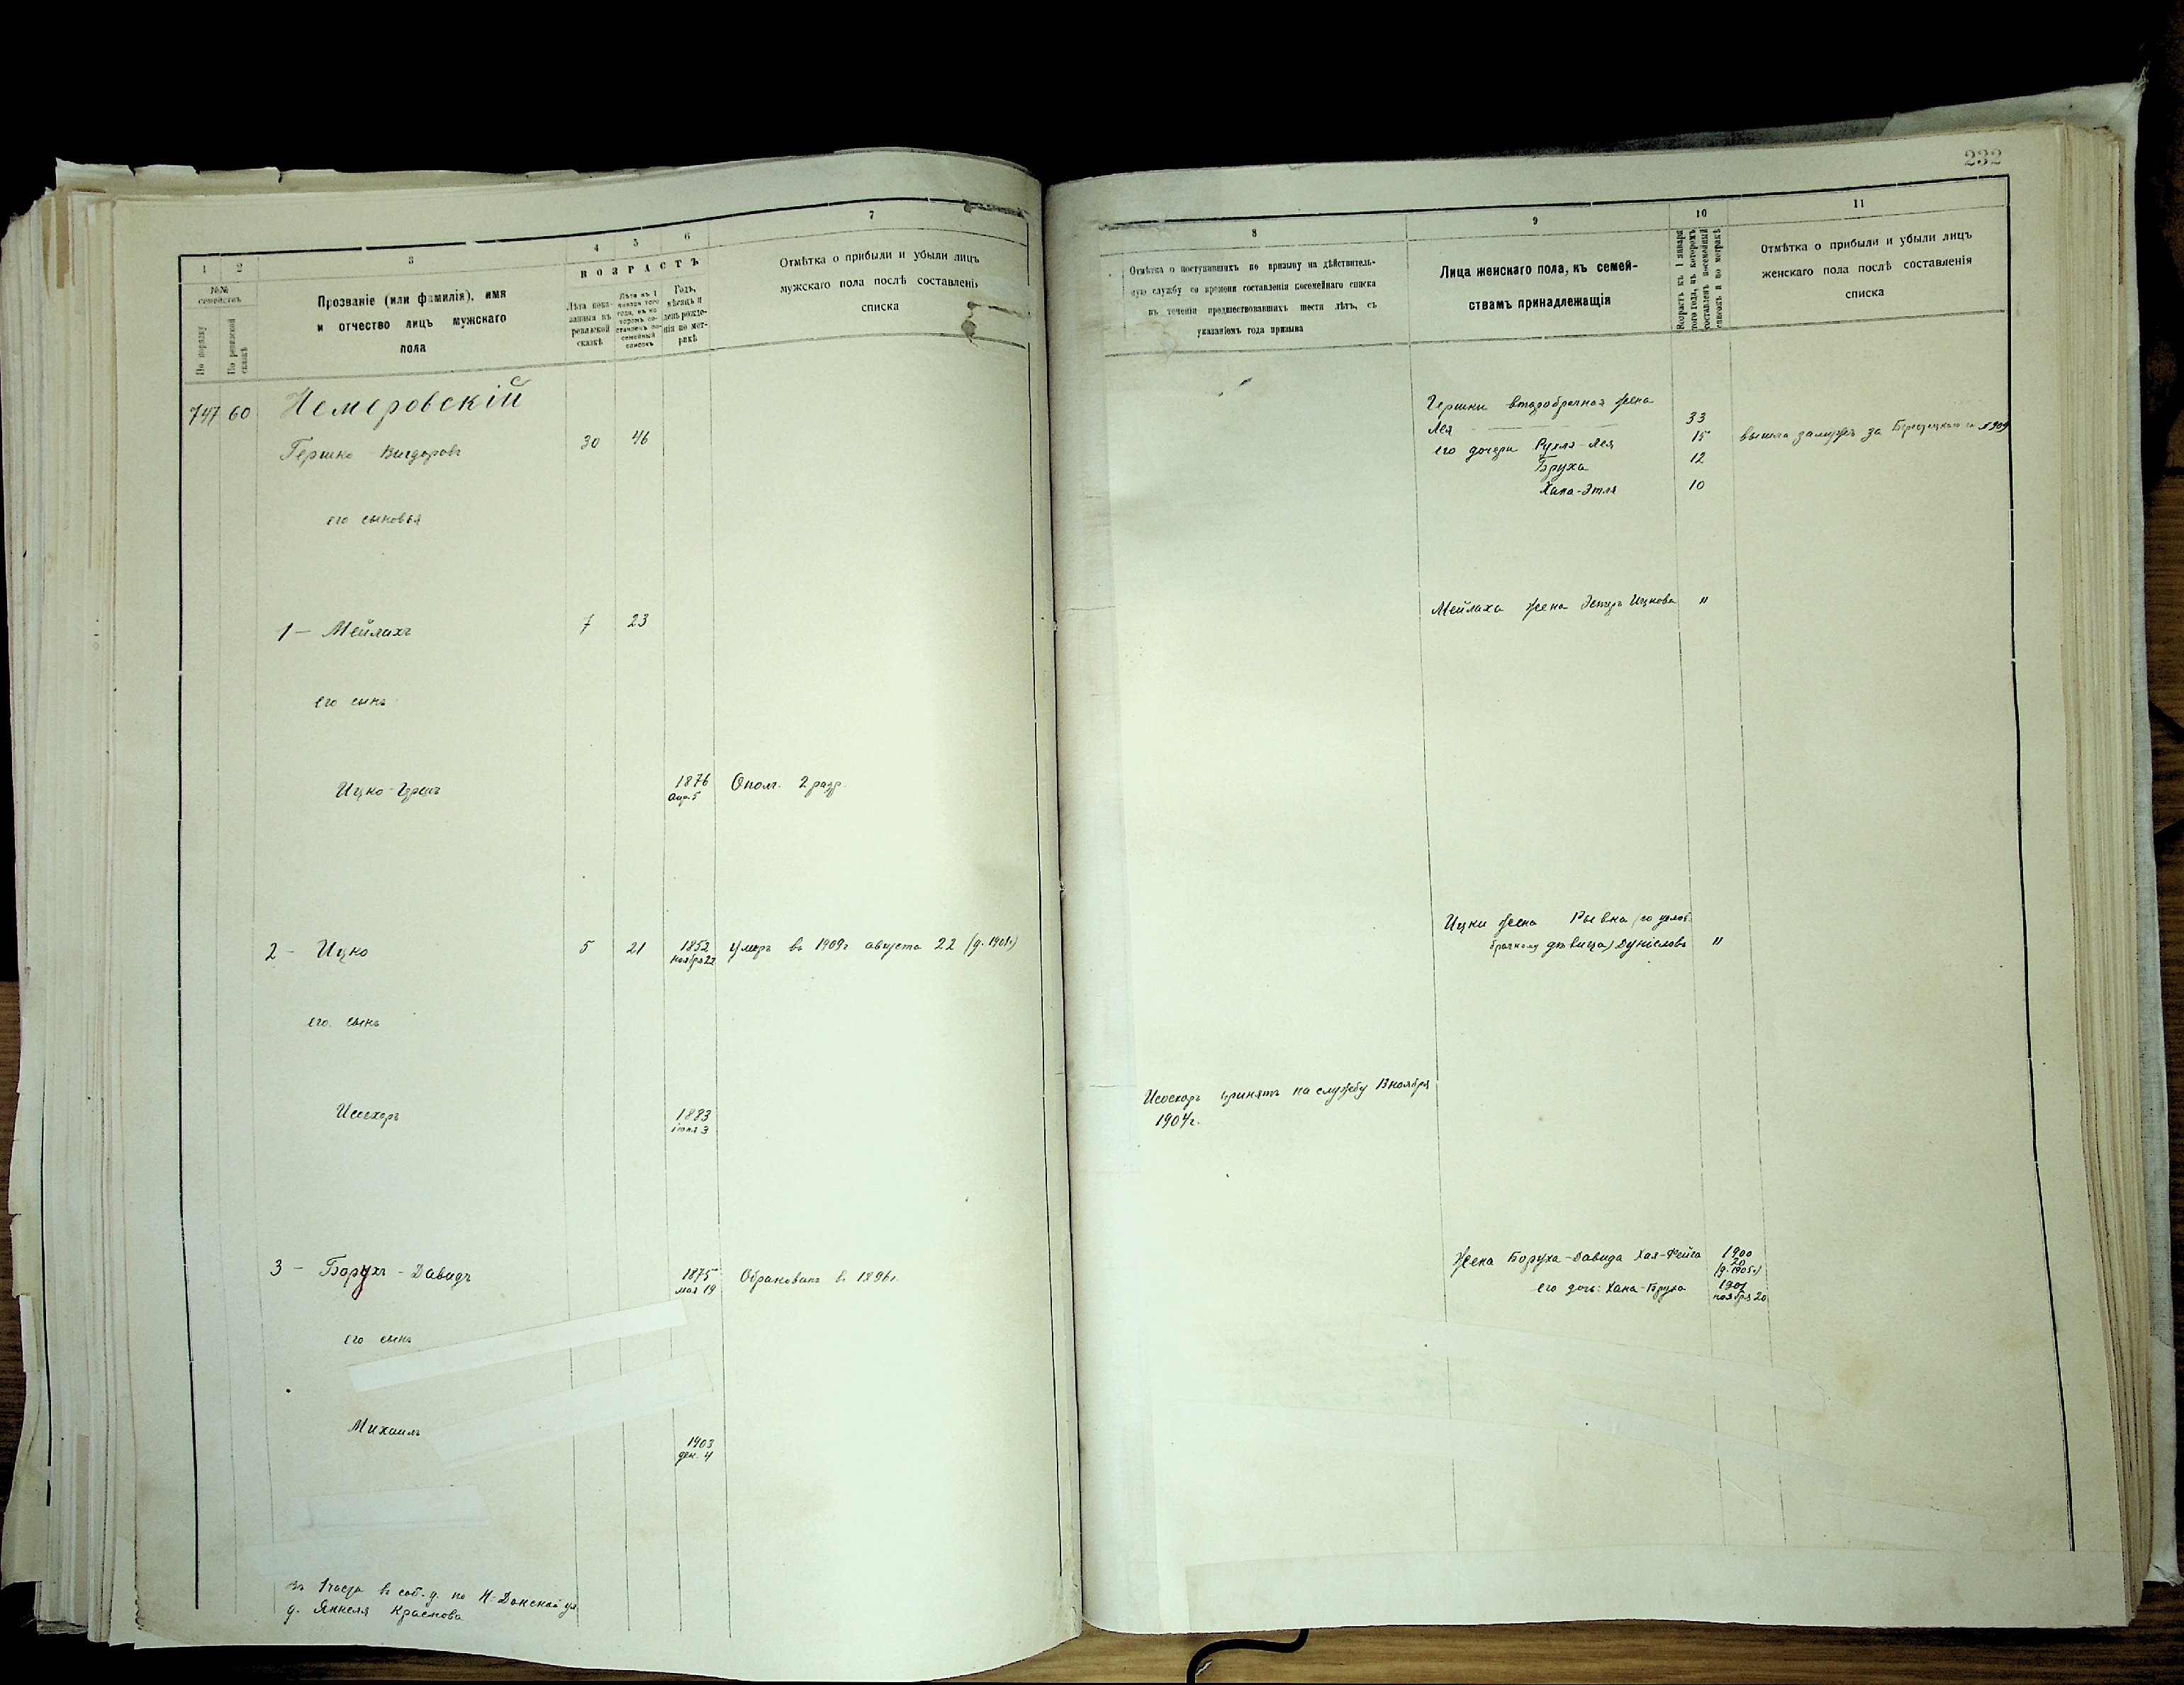 1
2
3
4
5
6
7
№№
семействъ
По порядку
По ревизской
сказкѣ
Прозваніе (или фамилія), имя
и отчество лицъ мужскаго
пола
ВОЗРАСТЪ
Лѣта пока-
занныя въ
ревизской
сказкѣ
Лѣта къ 1
января того
года, въ ко-
торомъ со-
ставленъ по-
семейный
списокъ
Годъ,
мѣсяцъ и
день рожде-
нія по мет-
рикѣ
Отмѣтка о прибыли и убыли лицъ
мужскаго пола послѣ составленія
списка
747 60 Немеровскій
Гершко Вигдоровъ 30 46
его сыновья
1 — Мейлахъ 7 23
его сынъ
Ицко-Гершъ 1876
Апр. 5
Ополч. 2 разр.
2 — Ицко 5 21 1852
ноября 22
умеръ въ 1909г августа 22
его сынъ
Исехоръ 1883
іюля 3
3 — Борухъ-Давидъ 1875
мая 19
Обракованъ въ 1896г.
его сынъ
Михаилъ
1903
дек. 4
по Н-Донской ул.
д. Янкеля Краснова
232
8
9
10
11
Отмѣтка о поступавшихъ по призыву на дѣйствитель-
ную службу со времени составленія посемейнаго списка
въ теченіи предшествовавшихъ шести лѣтъ, съ
указаніемъ года призыва
Лица женскаго пола, къ семей-
ствамъ принадлежащія
Возрастъ къ 1 января
того года, въ которомъ
составленъ посемейный
списокъ и по метрикѣ
Отмѣтка о прибыли и убыли лицъ
женскаго пола послѣ составленія
списка
Гершки второбрачная жена
Лея 33
его дочери Рухля-Лея 15 вышла замужъ за
Бруха 12
Хана-Этля 10
Мейлаха жена Эстеръ Ицкова "
Ицки жена Ривка
дѣвица) "
Исохоръ принятъ на службу 13 ноября
1904г.
Жена Боруха-Давида Хая-Фейга 1900
20
(д. 1905г)
его дочь: Хана-Бруха 1901
ноября 20